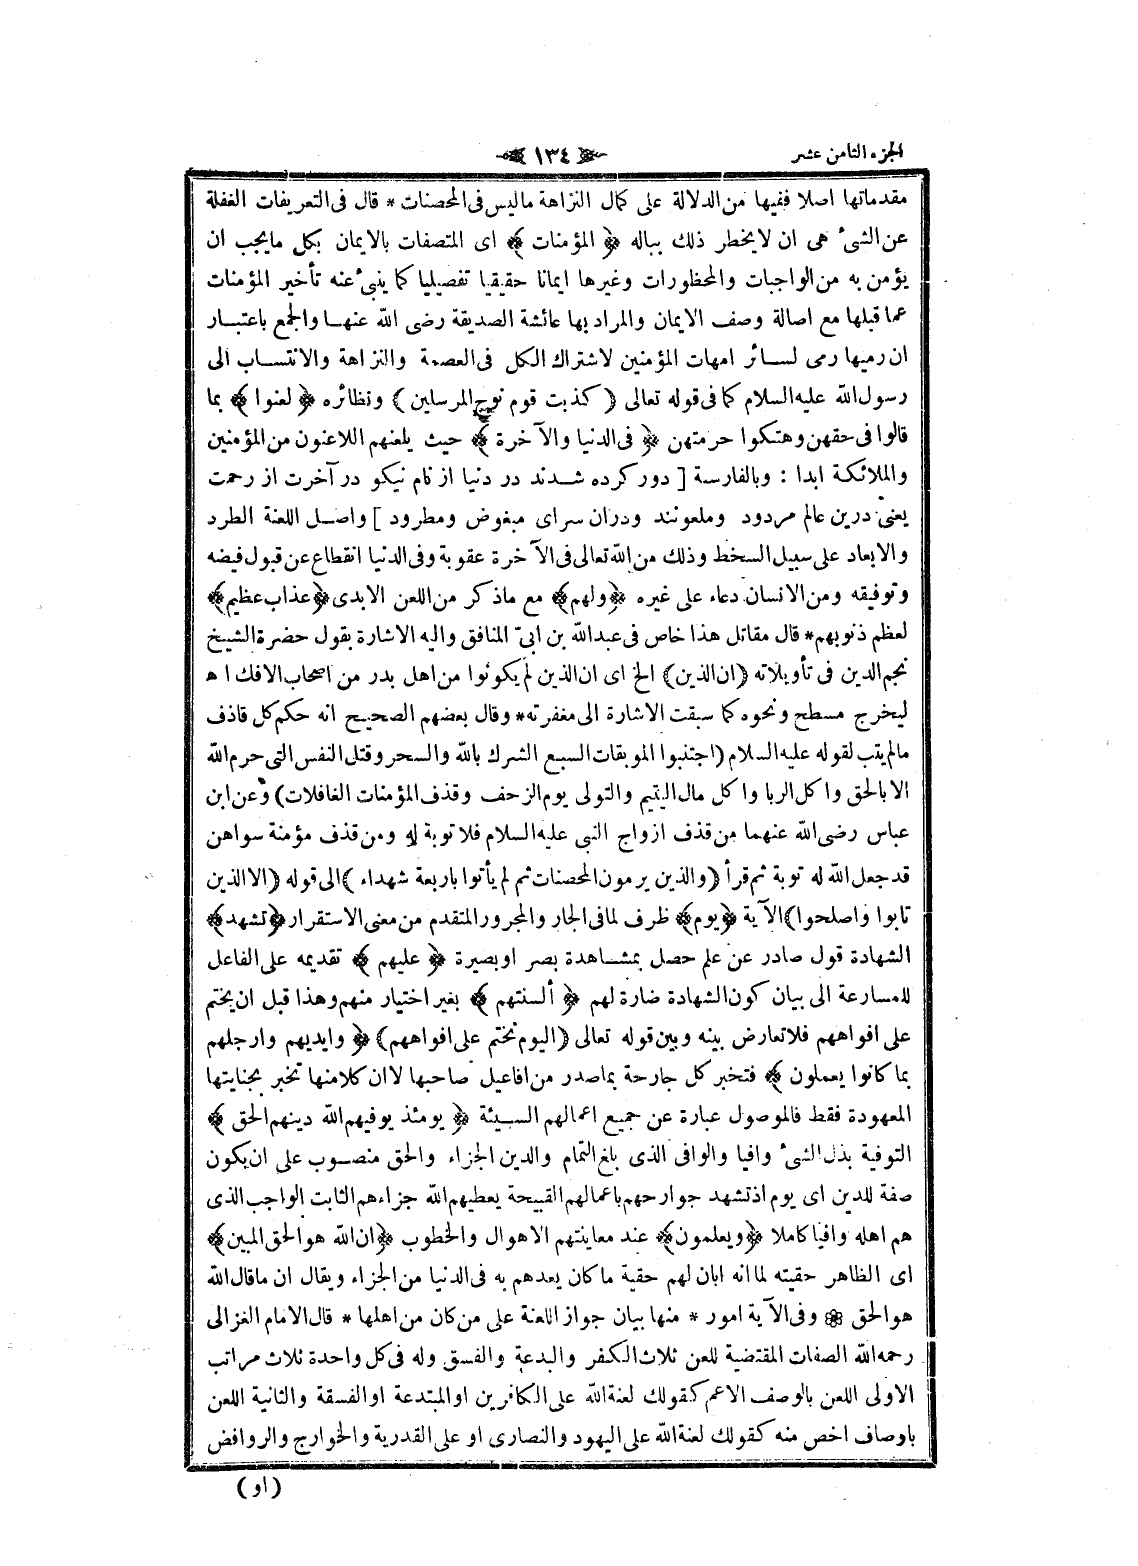 الجزء الثامن عشر
١٣٤
مقدماتها اصلا ففيها من الدلالة على كمال النزاهة ماليس فى المحصنات * قال فى التعريفات الغفلة
عن الشىٔ هى ان لا يخطر ذلك بباله ﴿ المؤمنات ﴾ اى المتصفات بالايمان بكل مايجب ان
يؤمن به من الواجبات والمحظورات وغيرها ايمانا حقيقيا تفصيليا كما ينبئ عنه تأخير المؤمنات
عما قبلها مع اصالة وصف الايمان والمراد بها عائشة الصديقة رضى الله عنهـا والجمع باعتبار
ان رميها رمى لسـائر امهات المؤمنين لاشتراك الكل فى العصمة والنزاهة والانتسـاب الى
رسول الله عليه السلام كما فى قوله تعالى ( كذبت قوم نوح المرسلين ) ونظائره ﴿ لعنوا ﴾ بما
قالوا فى حقهن وهتكوا حرمتهن ﴿ فى الدنيا والآخرة ﴾ حيث يلعنهم اللاعنون من المؤمنين
والملائكة ابدا : وبالفارسة [ دور كرده شـدند در دنيا از نام نيكو در آخرت از رحمت
يعنى درين عالم مردود وملعونند ودران سراى مبغوض ومطرود ] واصـل اللعنة الطرد
والابعاد على سبيل السخط وذلك من الله تعالى فى الآخرة عقوبة وفى الدنيا انقطاع عن قبول فيضه
وتوفيقه ومن الانسان دعاء على غيره ﴿ولهم﴾ مع ماذكر من اللعن الابدى ﴿عذاب عظيم﴾
لعظم ذنوبهم * قال مقاتل هذا خاص فى عبدالله بن ابىّ المنافق واليه الاشارة بقول حضرة الشيخ
نجم الدين فى تأويلاته (ان الذين) الخ اى ان الذين لم يكونوا من اهل بدر من اصحاب الافك اه
ليخرج مسطح ونحوه كما سبقت الاشارة الى مغفرته * وقال بعضهم الصحيح انه حكم كل قاذف
مالم يتب لقوله عليه السلام (اجتنبوا الموبقات السبع الشرك بالله والسحر وقتل النفس التى حرم الله
الا بالحق واكل الربا واكل مال اليتيم والتولى يوم الزحف وقذف المؤمنات الغافلات) وعن ابن
عباس رضى الله عنهما من قذف ازواج النبى عليه السلام فلا توبة له ومن قذف مؤمنة سواهن
قد جعل الله له توبة ثم قرأ (والذين يرمون المحصنات ثم لم يأتوا باربعة شهداء )الى قوله (الا الذين
تابوا واصلحوا)الآية ﴿يوم﴾ ظرف لما فى الجار والمجرور المتقدم من معنى الاستقرار ﴿تشهد﴾
الشهادة قول صادر عن علم حصل بمشـاهدة بصر او بصيرة ﴿ عليهم ﴾ تقديمه على الفاعل
للمسارعة الى بيان كون الشهادة ضارة لهم ﴿ ألسنتهم ﴾ بغير اختيار منهم وهذا قبل ان يختم
على افواههم فلا تعارض بينه وبين قوله تعالى (اليوم نختم على افواههم) ﴿ وايديهم وارجلهم
بما كانوا يعملون ﴾ فتخبر كل جارحة بما صدر من افاعيل صاحبها لا ان كلا منها تخبر بجنايتها
المعهودة فقط فالموصول عبارة عن جميع اعمالهم السـيئة ﴿ يومئذ يوفيهم الله دينهم الحق ﴾
التوفية بذل الشىٔ وافيا والوافى الذى بلغ التمام والدين الجزاء والحق منصـوب على ان يكون
صفة للدين اى يوم اذ تشهد جوارحهم باعمالهم القبيحة يعطيهم الله جزاءهم الثابت الواجب الذى
هم اهله وافيا كاملا ﴿ويعلمون﴾ عند معاينتهم الاهوال والخطوب ﴿ان الله هو الحق المبين﴾
اى الظاهر حقيته لما انه ابان لهم حقية ما كان يعدهم به فى الدنيا من الجزاء ويقال ان ما قال الله
هو الحق ❁ وفى الآية امور * منها بيان جواز اللعنة على من كان من اهلها * قال الامام الغزالى
رحمه الله الصفات المقتضية للعن ثلاث الكفر والبدعة والفسق وله فى كل واحدة ثلاث مراتب
الاولى اللعن بالوصف الاعم كقولك لعنة الله على الكافرين او المبتدعة او الفسقة والثانية اللعن
باوصاف اخص منه كقولك لعنة الله على اليهود والنصارى او على القدرية والخوارج والروافض
( او )